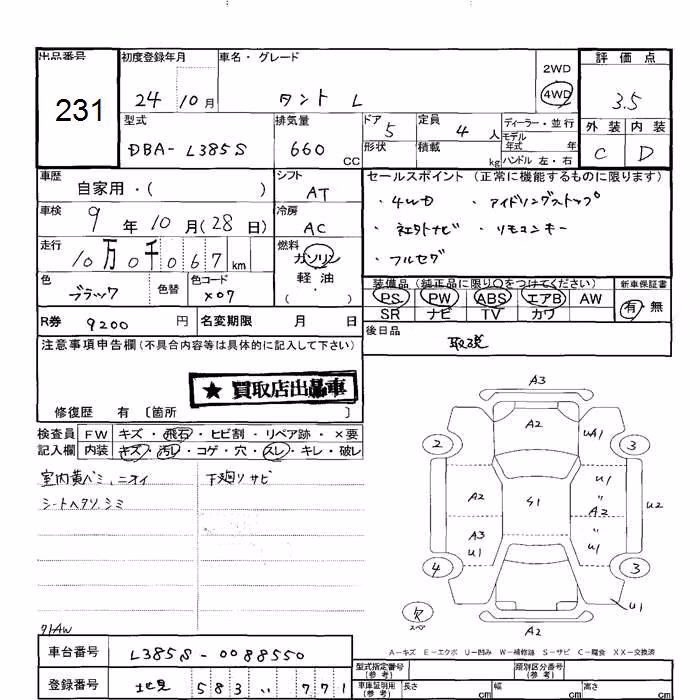 出品番号 初度登録年月 車名・グレード 2WD 評価点
231 24 10月 タント L 4WD 3.5
型式 排気量 ドア 定員 ディーラー・並行 外装 内装
DBA-L385S 660 CC 5 4 人 モデル年式 年 C D
形状 積載 kg ハンドル 左・右
車歴 シフト セールスポイント (正常に機能するものに限ります)
自家用・( ) AT ・4WD ・アイドリングストップ
車検 冷房 ・社外ナビ ・リモコンキー
9年10月(28日) AC ・フルセグ
走行 燃料
10万0千067km ガソリン
色 色替 色コード 軽油 装備品 (純正品に限り○をつけてください) 新車保証書
ブラック X07 ・( ) PS PW ABS エアB AW 有・無
SR ナビ TV カワ
R券 9200 円 名変期限 月 日 後日品
注意事項申告欄(不具合内容等は具体的に記入して下さい) 取説
★買取店出品車
修復歴 有 〔箇所 〕
検査員 FW キズ・飛石・ヒビ割・リペア跡・×要
記入欄 内装 キズ・汚レ・コゲ・穴・スレ・キレ・破レ
室内黄バミ、ニオイ 下廻りサビ
シートヘタリ、シミ
A3
A2 UA1
2 3
A2 S1 U1 〃 A2 U2
A3 U1 〃 U1
4 3
欠 U1
スペア A2
A-キズ E-エクボ U-凹み W-補修跡 S-サビ C-腐食 XX-交換済
車台番号 L385S-0088550
型式指定番号(参考) 類別区分番号(参考)
登録番号 583 い 771
車庫証明用(参考) 長さ cm 幅 cm 高さ cm